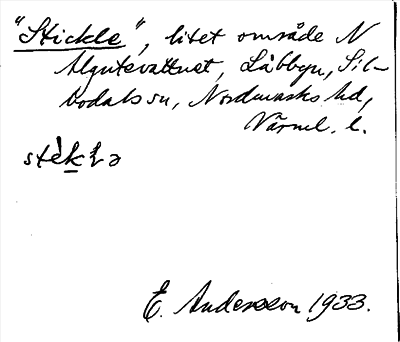 "Stickle", litet område N
Algutevattnet, Låbbyn, Sil-
bodals sn, Nordmarks hd,
Värml. l.
stèkɬə
E. Andersson 1933.